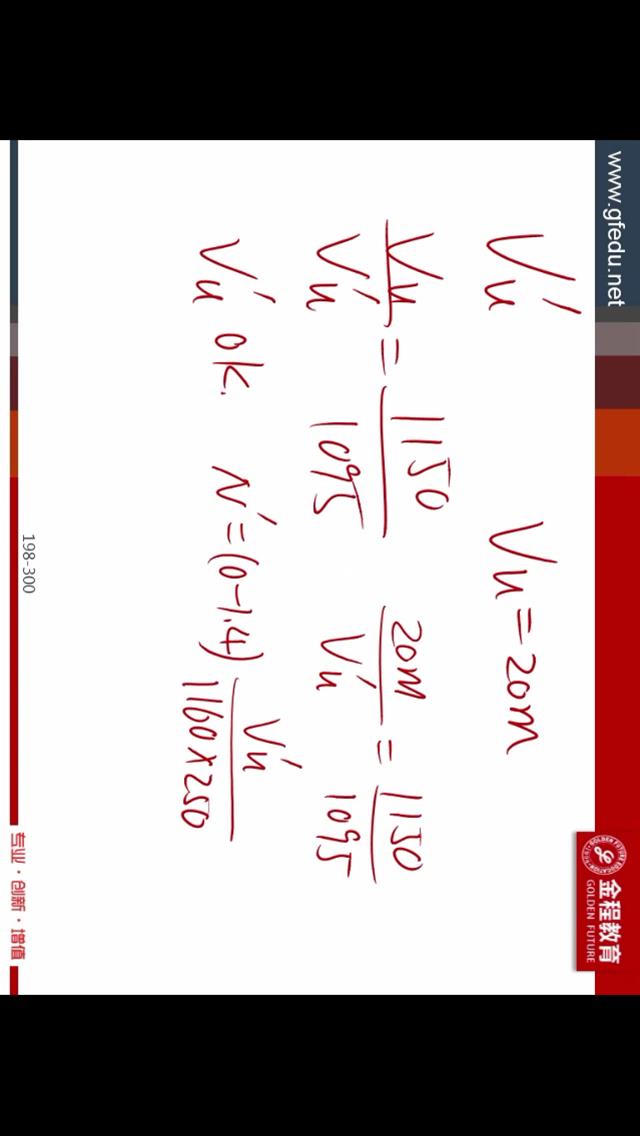 www.gfedu.net
金程教育
GOLDEN FUTURE
V'u Vu=20m
Vu/V'u = 1150/1095 20m/V'u = 1150/1095
V'u ok. N'=(0-1.4) V'u/1160×250
198-300
专业·创新·增值